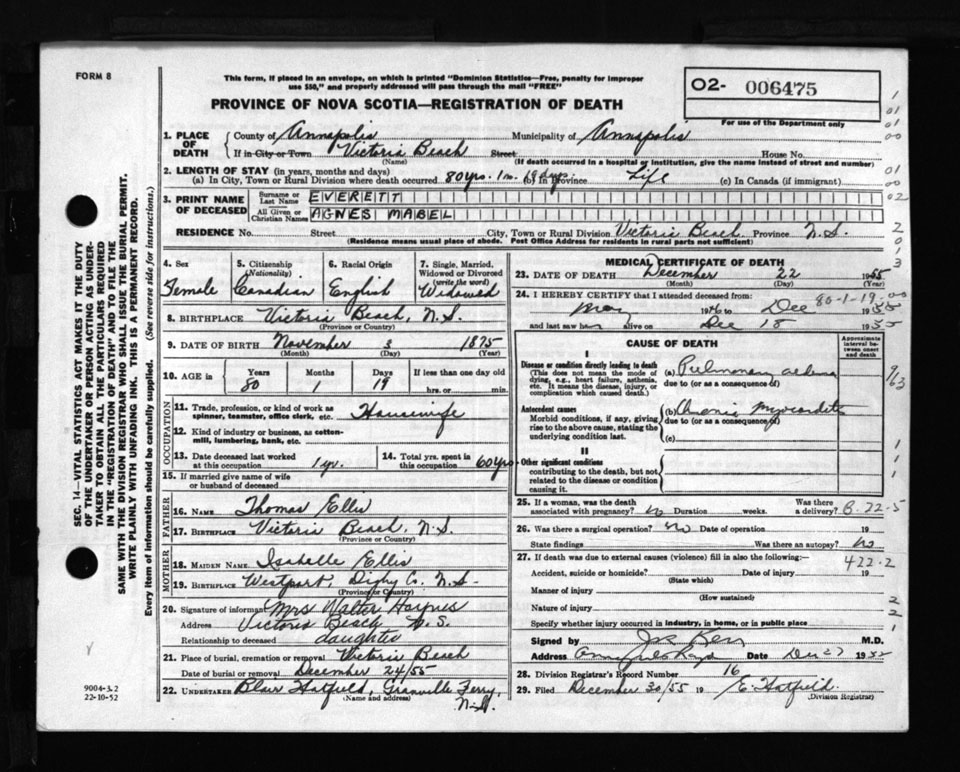 FORM 8
This form, if placed in an envelope, on which is printed "Dominion Statistics—Free, penalty for improper
use $50," and properly addressed will pass through the mail "FREE"
PROVINCE OF NOVA SCOTIA—REGISTRATION OF DEATH
O2- 006475
For use of the Department only
1. PLACE OF DEATH
County of Annapolis Municipality of Annapolis
If in City or Town Victoria Beach Street House No.
(Name) (If death occurred in a hospital or institution, give the name instead of street and number)
2. LENGTH OF STAY (in years, months and days)
(a) In City, Town or Rural Division where death occurred 80 yrs. 1 m. 19 days. (b) In Province Life (c) In Canada (if immigrant)
3. PRINT NAME OF DECEASED
Surname or Last Name EVERETT
All Given or Christian Names AGNES MABEL
RESIDENCE No. Street City, Town or Rural Division Victoria Beach Province N.S.
(Residence means usual place of abode. Post Office Address for residents in rural parts not sufficient)
4. Sex
Female
5. Citizenship (Nationality)
Canadian
6. Racial Origin
English
7. Single, Married, Widowed or Divorced (write the word)
Widowed
8. BIRTHPLACE Victoria Beach, N.S.
(Province or Country)
9. DATE OF BIRTH November 3 1875
(Month) (Day) (Year)
10. AGE in Years 80 Months 1 Days 19 If less than one day old
hrs. or min.
OCCUPATION
11. Trade, profession, or kind of work as
spinner, teamster, office clerk, etc. Housewife
12. Kind of industry or business, as cotton-
mill, lumbering, bank, etc.
13. Date deceased last worked
at this occupation 1 yr.
14. Total yrs. spent in
this occupation 60 yrs.
15. If married give name of wife
or husband of deceased
FATHER
16. Name Thomas Ellis
17. Birthplace Victoria Beach, N.S.
(Province or Country)
MOTHER
18. Maiden Name Isabelle Ellis
19. Birthplace Westport, Digby Co. N.S.
(Province or Country)
20. Signature of informant Mrs Walter Haynes
Address Victoria Beach N.S.
Relationship to deceased daughter
21. Place of burial, cremation or removal Victoria Beach
Date of burial or removal December 24/55
22. UNDERTAKER Blair Hatfield, Granville Ferry,
(Name and address) N.S.
MEDICAL CERTIFICATE OF DEATH
23. DATE OF DEATH December 22 1955
(Month) (Day) (Year)
80-1-19
24. I HEREBY CERTIFY that I attended deceased from
May 1946 to Dec 1955
and last saw her alive on Dec 18 1955
CAUSE OF DEATH
Approximate interval between onset and death
I
Disease or condition directly leading to death
(This does not mean the mode of
dying, e.g., heart failure, asthenia,
etc. It means the disease, injury, or
complication which caused death.)
(a) Pulmonary edema
due to (or as a consequence of)
Antecedent causes
Morbid conditions, if any, giving
rise to the above cause, stating the
underlying condition last.
(b) Chronic Myocarditis
due to (or as a consequence of)
(c)
II
Other significant conditions
contributing to the death, but not
related to the disease or condition
causing it.
25. If a woman, was the death
associated with pregnancy? No Duration weeks. Was there a delivery?
B-22-5
26. Was there a surgical operation? No Date of operation 19
State findings Was there an autopsy? No
27. If death was due to external causes (violence) fill in also the following:—
422-2
Accident, suicide or homicide? Date of injury 19
(State which)
Manner of injury
(How sustained)
Nature of injury
Specify whether injury occurred in industry, in home, or in public place
Signed by Kerr M.D.
Address Annapolis Royal Date Dec 27 1955
28. Division Registrar's Record Number 16
29. Filed December 30/55 19 E. Hatfield
(Division Registrar)
SEC. 14—VITAL STATISTICS ACT MAKES IT THE DUTY
OF THE UNDERTAKER OR PERSON ACTING AS UNDER-
TAKER TO OBTAIN ALL THE PARTICULARS REQUIRED
IN THE "REGISTRATION OF DEATH" AND TO FILE THE
SAME WITH THE DIVISION REGISTRAR WHO SHALL ISSUE THE BURIAL PERMIT.
WRITE PLAINLY WITH UNFADING INK. THIS IS A PERMANENT RECORD.
Every item of information should be carefully supplied. (See reverse side for instructions.)
9004-3.2
22-10-52